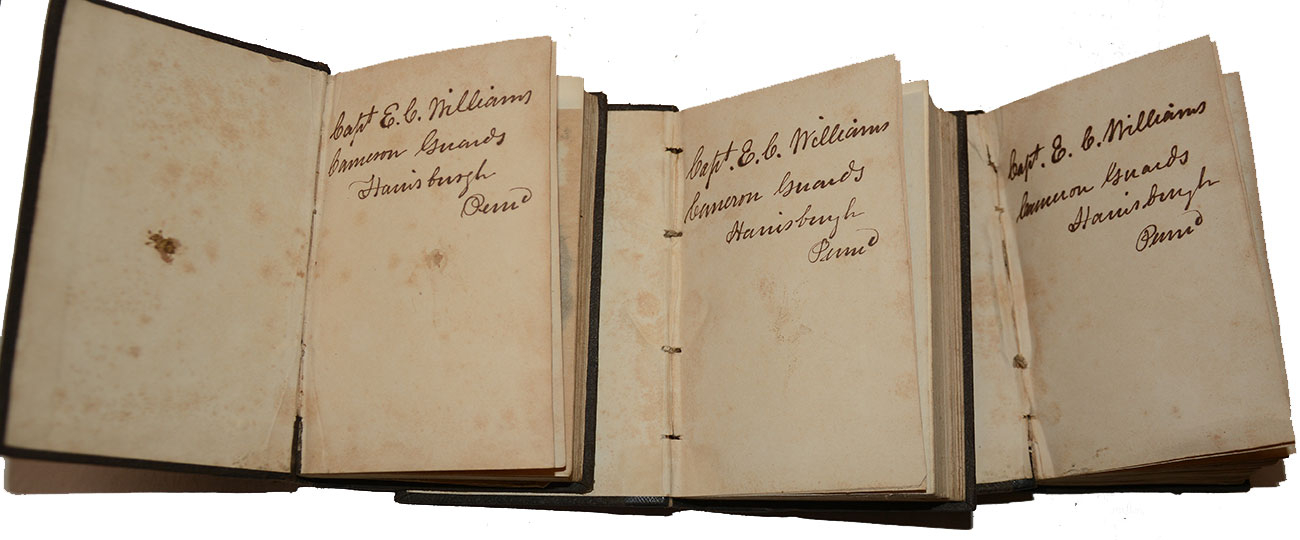 Capt E. C. Williams
Cameron Guards
Harrisburgh
Penna
Capt. E. C. Williams
Cameron Guards
Harrisburgh
Penna
Capt. E. C. Williams
Cameron Guards
Harrisburgh
Penna